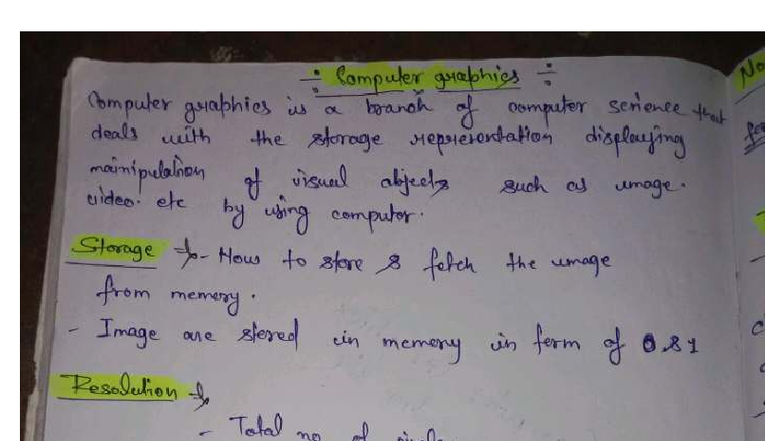 ÷ Computer graphics ÷
Computer graphics is a branch of computer science that
deals with the storage representation displaying
mainipulation of visual objects such as image.
video. etc by using computer.
Storage → - How to store & fetch the image
from memory.
- Image are stored in memory in form of 0 & 1
Resolution →
- Total no of
No